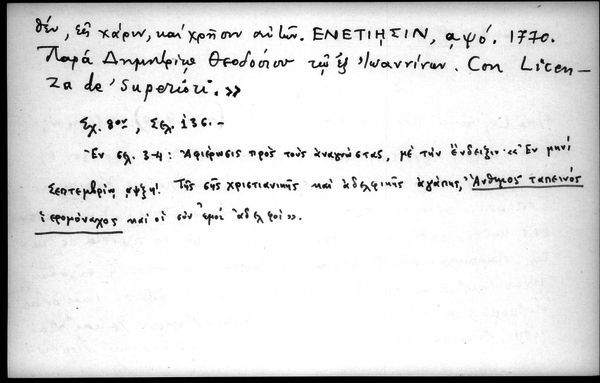 θέν, εἰς χάριν, καὶ χρῆσιν αὐτῶν. ΕΝΕΤΙΗΣΙΝ, αψό. 1770.
Παρὰ Δημητρίῳ Θεοδοσίου τῷ ἐξ Ἰωαννίνων. Con Licen-
za de' Superiori.»
Σχ. 8ον, Σελ. 136.-
Ἐν σελ. 3-4: Ἀφιέρωσις πρὸς τοὺς ἀναγνώστας, μὲ τὴν ἔνδειξιν «Ἐν μηνὶ
Σεπτεμβρίῳ αψξη'. Τῆς σῆς χριστιανικῆς καὶ ἀδελφικῆς ἀγάπης, Ἄνθιμος ταπεινὸς
ἱερομόναχος καὶ οἱ σὺν ἐμοὶ ἀδελφοί».